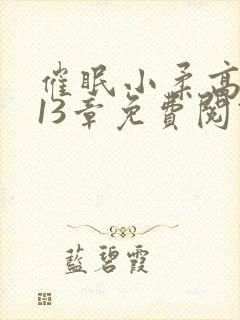 催眠小柔高
13章免費閱
藍碧霞